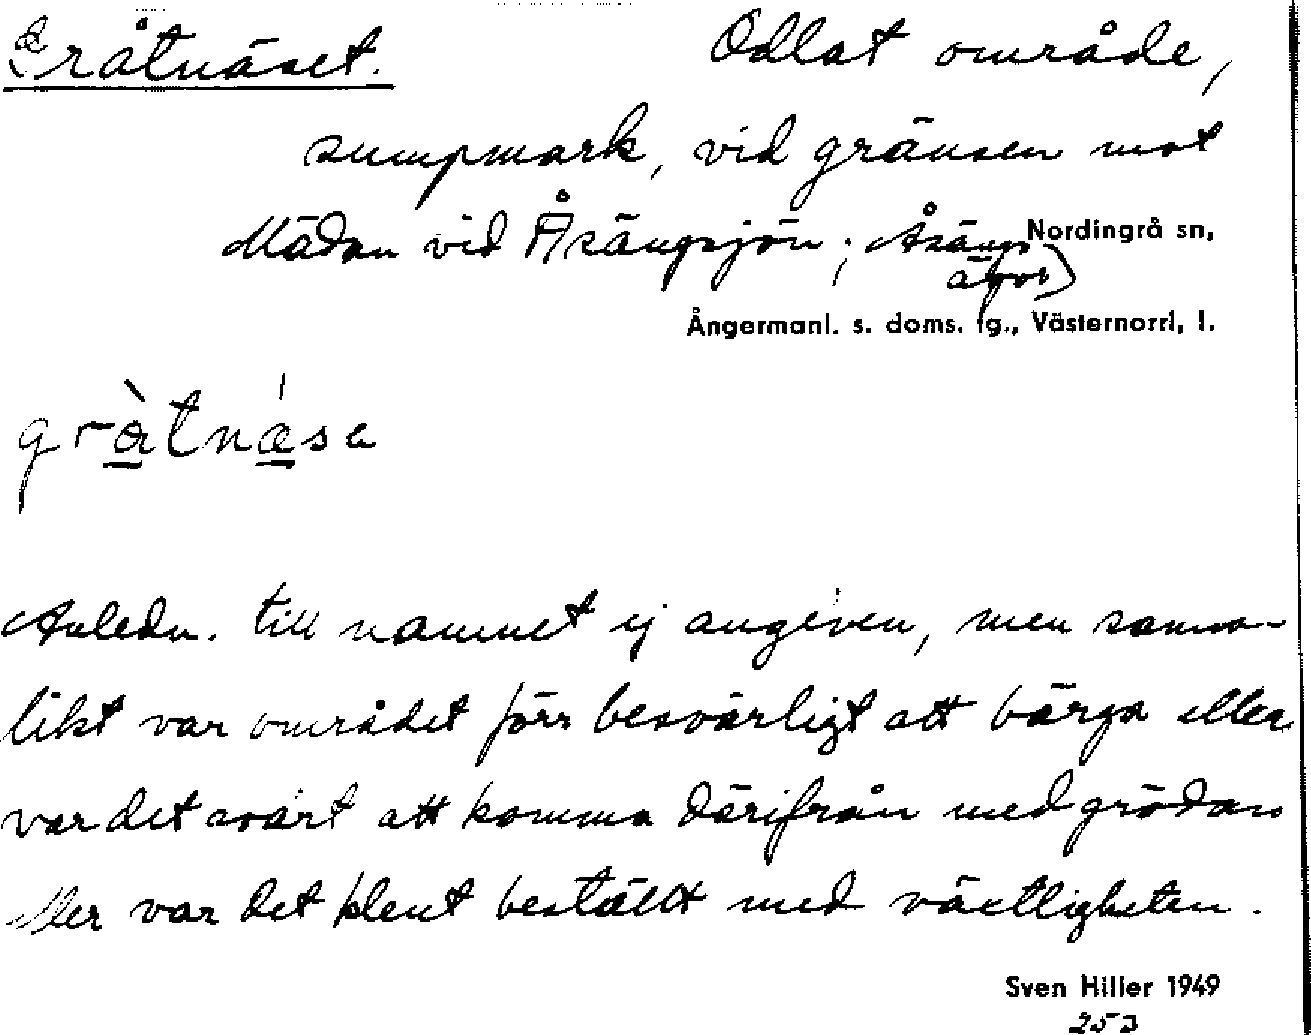 Gråtnäset. Odlat område,
sumpmark, vid gränsen mot
Mädan vid Åsängsjön; Åsängs
ägor)
Nordingrå sn,
Ångermanl. s. doms. tg., Västernorrl. l.
gråtnäsa
Avledn. till namnet ej angiven, men sanno-
likt var området förr besvärligt att bärga eller
var det svårt att komma därifrån med grödan
eller var det klent beställt med växtligheten.
Sven Hiller 1949